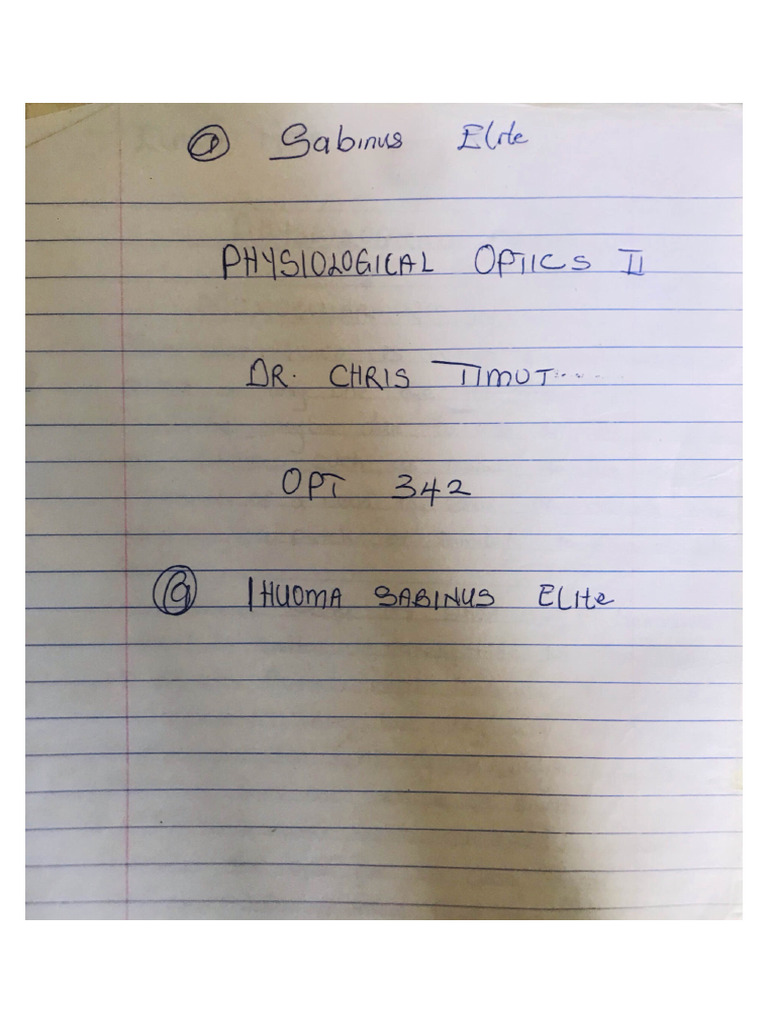 @ Sabinus Elite
PHYSIOLOGICAL OPTICS II
DR. CHRIS TIMOT......
OPT 342
@ IHUOMA SABINUS ELITE